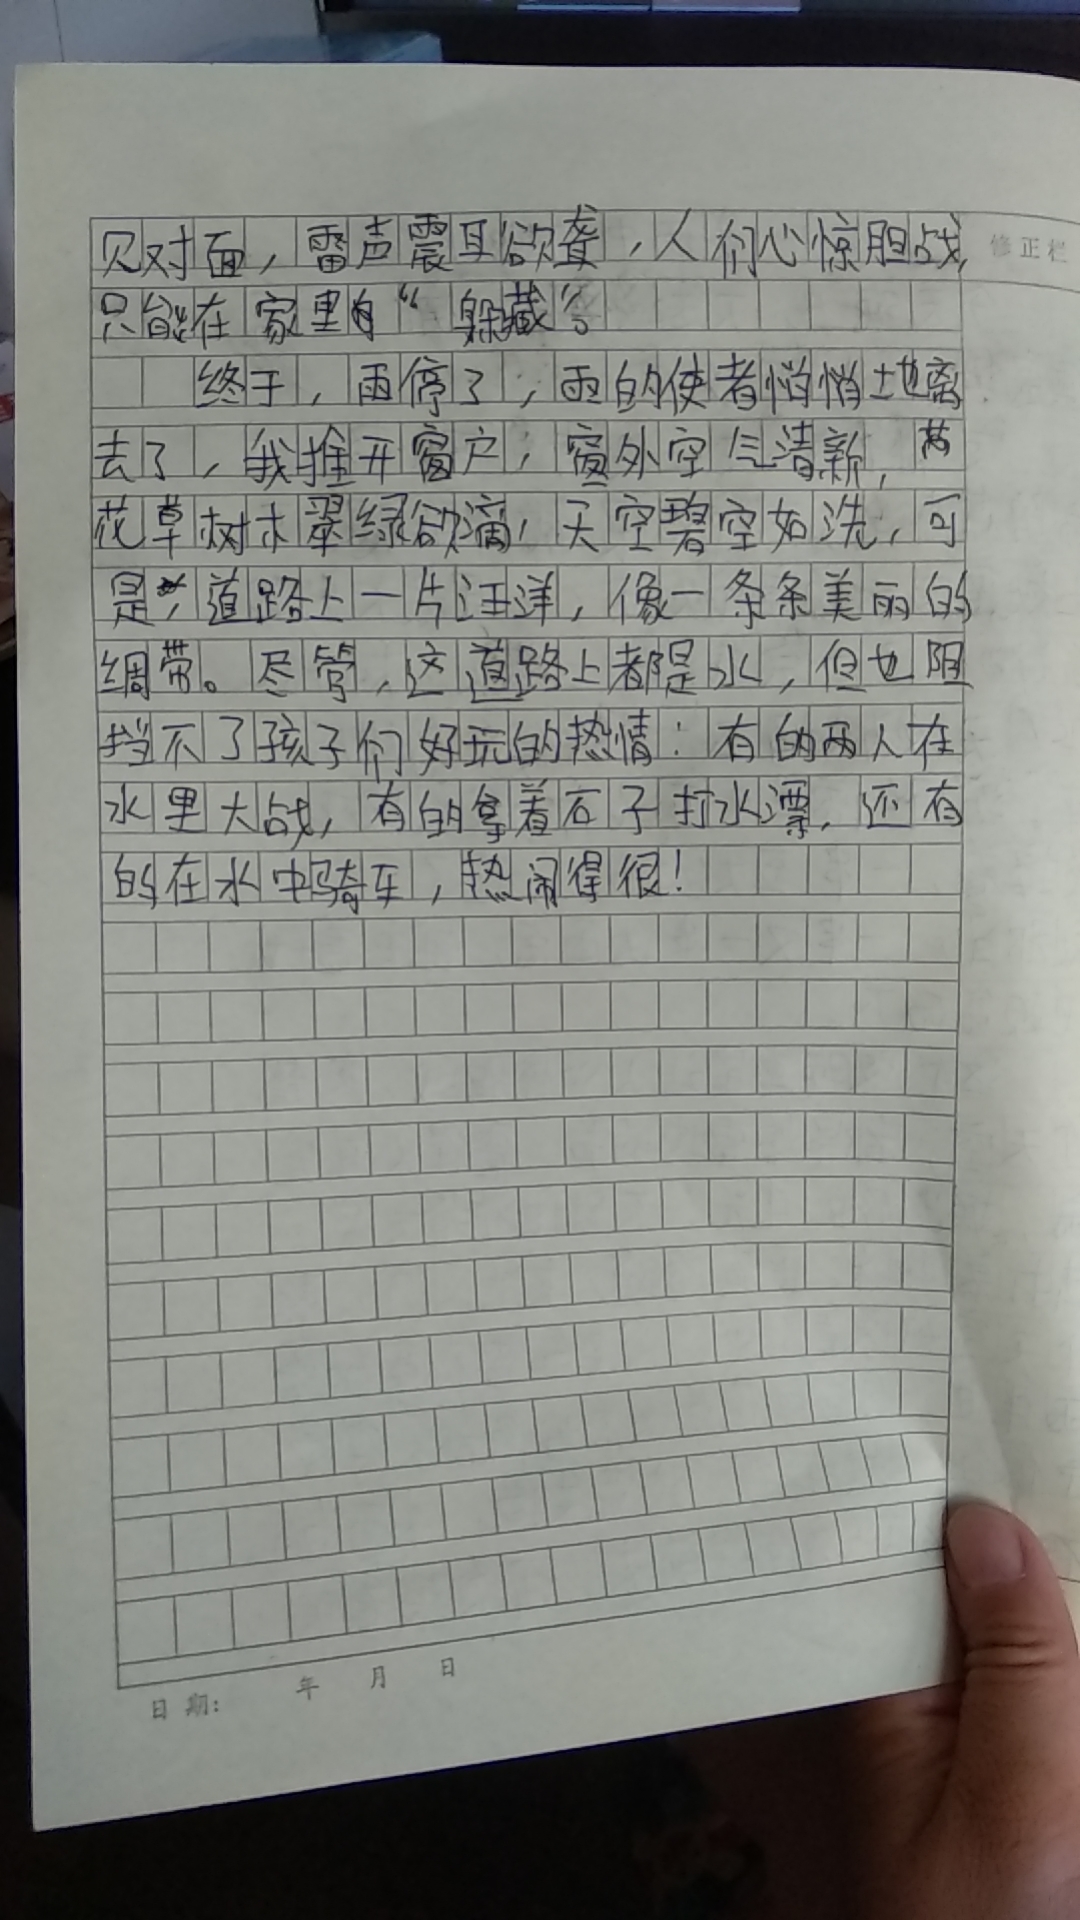 见对面，雷声震耳欲聋，人们心惊胆战，
修正栏
只能在家里"躲藏"。
终于，雨停了，雨的使者悄悄地离
去了，我推开窗户，窗外空气清新，
花草树木翠绿欲滴，天空碧空如洗，可
是，道路上一片汪洋，像一条条美丽的
绸带。尽管，这道路上都是水，但也阻
挡不了孩子们好玩的热情：有的两人在
水里大战，有的拿着石子打水漂，还有
的在水中骑车，热闹得很！
日期： 年 月 日